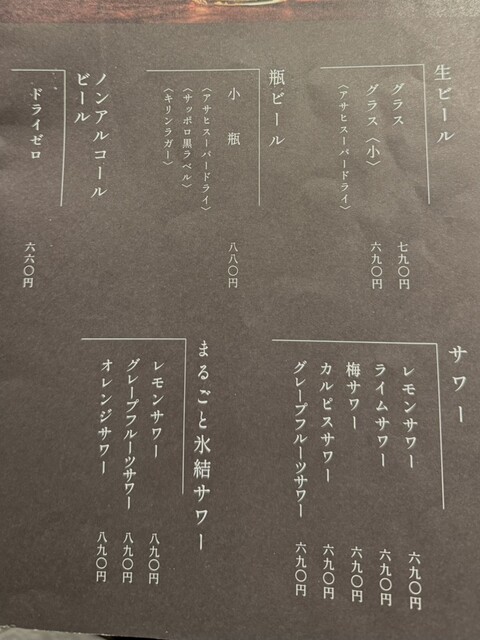 生ビール
グラス 七九〇円
グラス〈小〉 六九〇円
〈アサヒスーパードライ〉
瓶ビール
小瓶 八八〇円
〈アサヒスーパードライ〉
〈サッポロ黒ラベル〉
〈キリンラガー〉
ノンアルコール
ビール
ドライゼロ 六六〇円
サワー
レモンサワー 六九〇円
ライムサワー 六九〇円
梅サワー 六九〇円
カルピスサワー 六九〇円
グレープフルーツサワー 六九〇円
まるごと氷結サワー
レモンサワー 八九〇円
グレープフルーツサワー 八九〇円
オレンジサワー 八九〇円